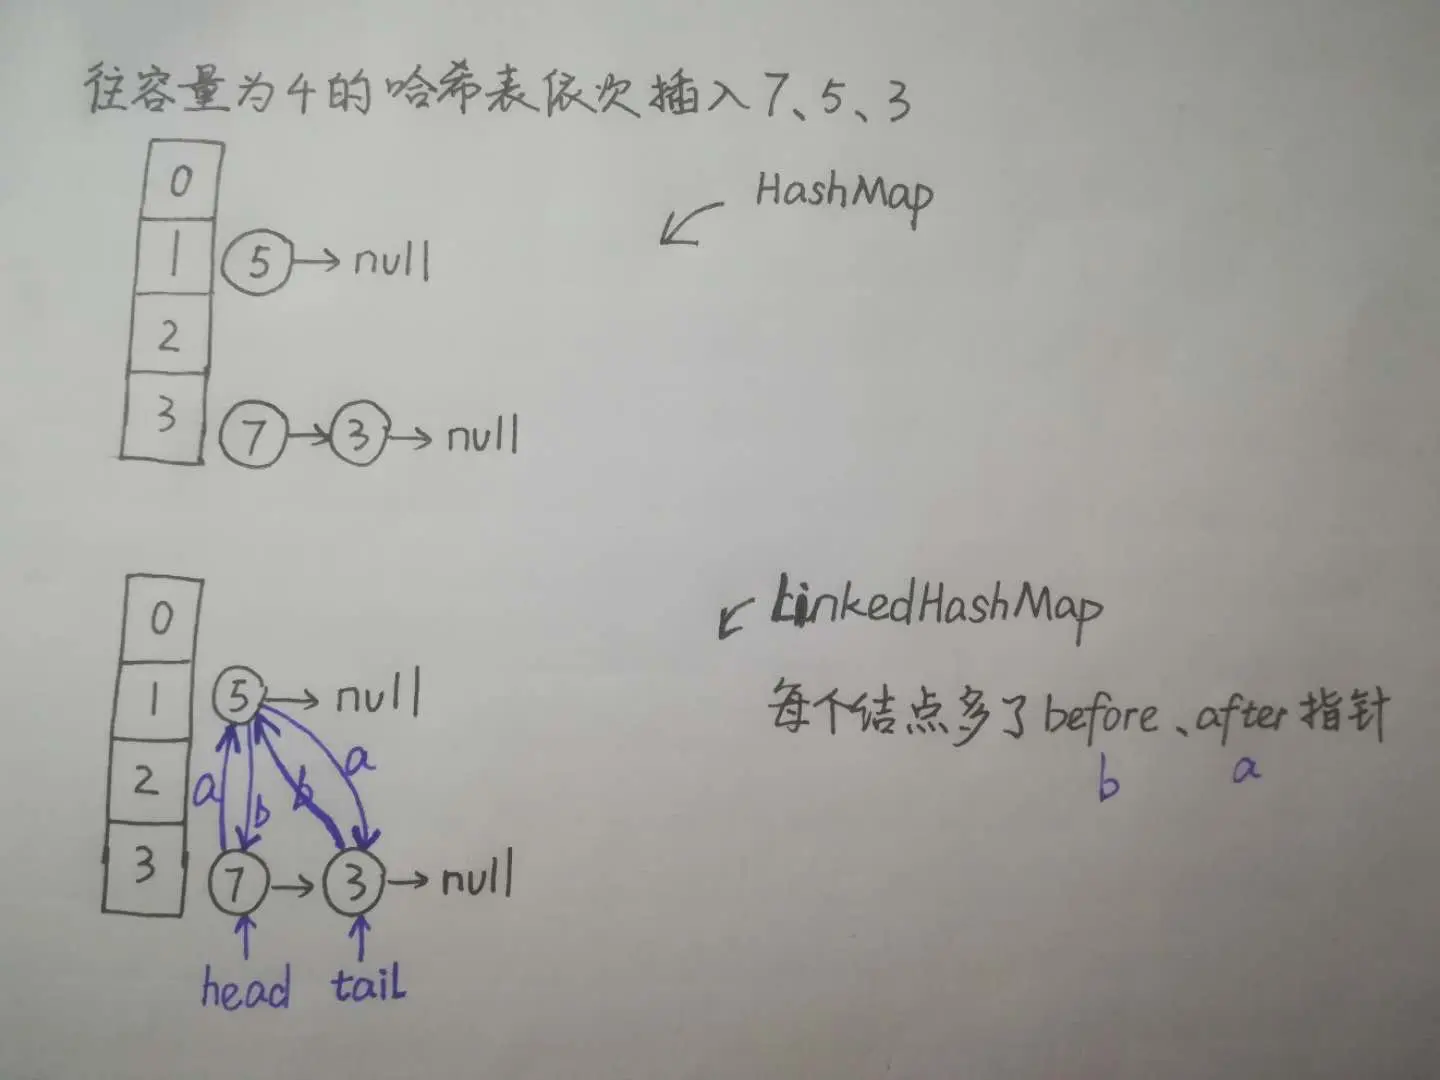 往容量为4的哈希表依次插入7、5、3
HashMap
0
1 5 null
2
3 7 3 null
LinkedHashMap
每个结点多了before、after指针
b a
0
1 5 null
a b b a
2
3 7 3 null
head tail